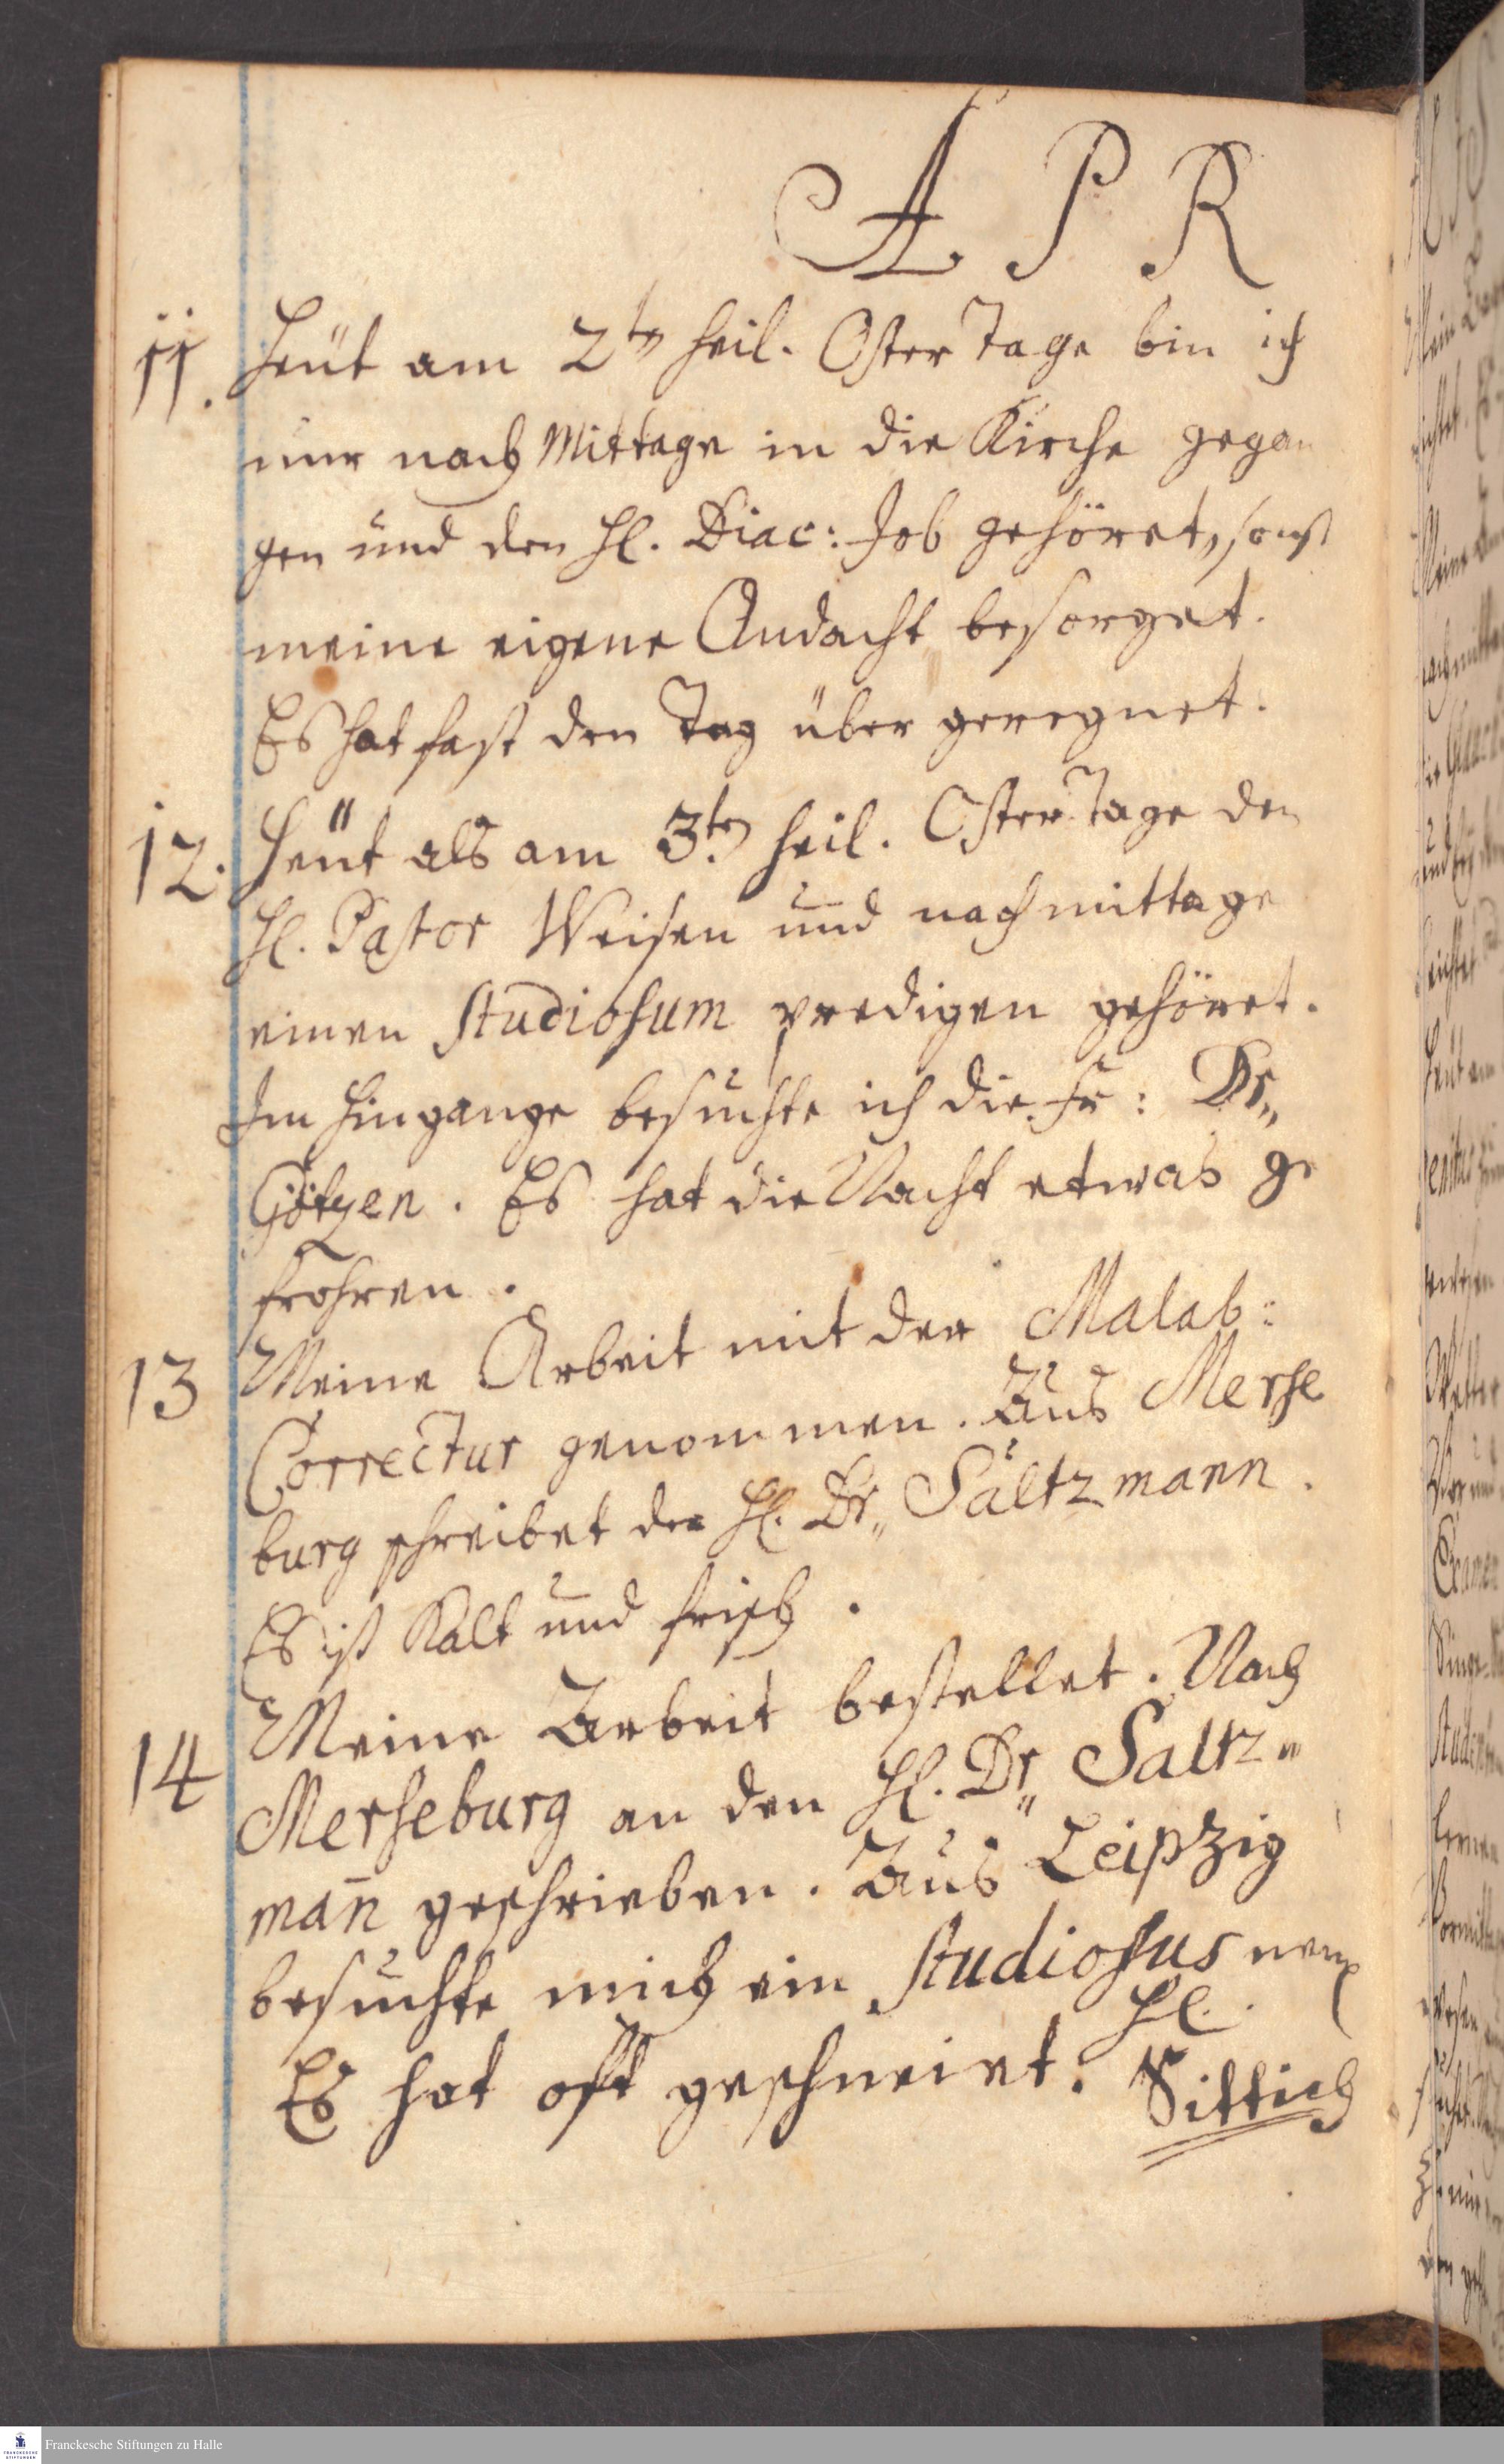 A P R
11. Heut am 2ten heil. Oster Tage bin ich
nur nach Mittage in die Kirche gegan
gen und den H. Diac: Job gehöret, sonst
meine eigene Andacht besorget.
Es hat fast den Tag über geregnet.
12. Heut als am 3ten heil. Oster Tage den
H. Pastor Weisen und nachmittage
einen Studiosum predigen gehöret.
Im Hingange besuchte ich die Fr: Dr„
Götzen. Es hat die Nacht etwas ge
frohren.
13 Meine Arbeit mit der Malab:
Correctur genommen. Aus Merse
burg schreibet der H. Dr„ Saltzmann.
Es ist Kalt und frisch.
14 Meine Arbeit bestellet. Nach
Merseburg an den H. Dr„ Saltz„
man̅ geschrieben. Aus Leipzig
besuchte mich ein Studiosus
H.
Es hat oft geschneiet. Sittich
Franckesche Stiftungen zu Halle